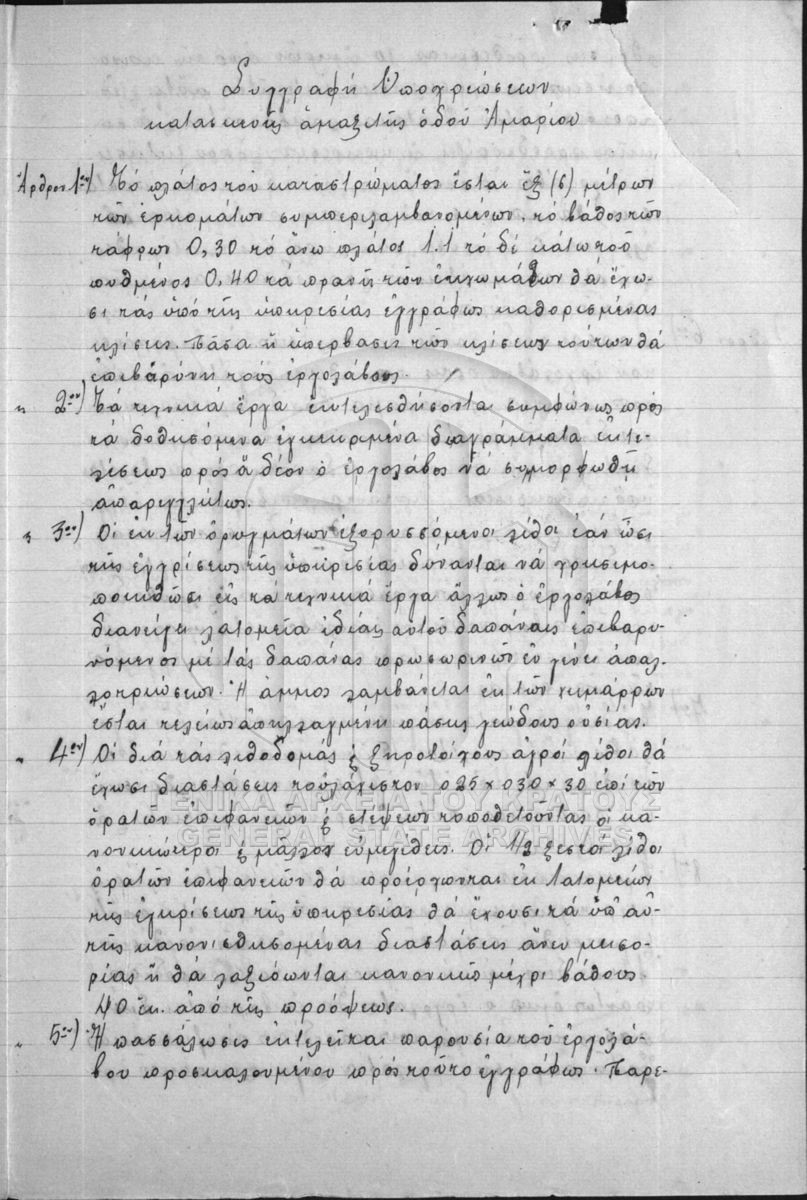 Συγγραφή Ὑποχρεώσεων
κατασκευῆς ἁμαξιτῆς ὁδοῦ Ἀμαρίου
Ἄρθρον 1ον) Τό πλάτος τοῦ καταστρώματος ἔσται ἕξ (6) μέτρων
τῶν ἐρεισμάτων συμπεριλαμβανομένων, τό βάθος τῶν
τάφρων 0,30 τό ἄνω πλάτος 1.1 τό δέ κάτω τοῦ
πυθμένος 0,40 τά πρανῆ τῶν ἐπιχωμάτων θά ἔχω-
σι τάς ὑπό τῆς ὑπηρεσίας ἐγγράφως καθορισμένας
κλίσεις. Πᾶσα ἡ ὑπέρβασις τῶν κλίσεων τούτων θά
ἐπιβαρύνῃ τούς ἐργολάβους.
" 2ον) Τά τεχνικά ἔργα ἐκτελεσθήσονται συμφώνως πρός
τά δοθησόμενα ἐγκεκριμένα διαγράμματα ἐκτε-
λέσεως πρός ἅ δέον ὁ ἐργολάβος νά συμμορφωθῇ
ἀπαρεγκλίτως.
" 3ον) Οἱ ἐκ τῶν ὀρυγμάτων ἐξορυσσόμενοι λίθοι ἐάν ὦσι
τῆς ἐγκρίσεως τῆς ὑπηρεσίας δύνανται νά χρησιμο-
ποιηθῶσι εἰς τά τεχνικά ἔργα ἄλλως ὁ ἐργολάβος
διανοίγει λατομεῖα ἰδίαις αὐτοῦ δαπάναις ἐπιβαρυ-
νόμενος μέ τάς δαπάνας προσωρινῶν ἐν γένει ἀπαλ-
λοτριώσεων. Ἡ ἄμμος λαμβάνεται ἐκ τῶν χειμάρρων
ἔσται τελείως ἀπηλλαγμένη πάσης γεώδους οὐσίας.
" 4ον) Οἱ διά τάς λιθοδομάς ἤ ξηροτοίχους ἀγροί λίθοι θά
ἔχωσι διαστάσεις τοὐλάχιστον 025 × 030 × 30 ἐπί τῶν
ὁρατῶν ἐπιφανειῶν ἤ στέψεων τοποθετοῦνται οἱ κα-
νονικώτεροι ἤ μᾶλλον εὐμεγέθεις. Οἱ 1/2 ξεστοί λίθοι
ὁρατῶν ἐπιφανειῶν θά προέρχωνται ἐκ λατομείων
τῆς ἐγκρίσεως τῆς ὑπηρεσίας θά ἔχουσι τά ὑπ' αὐ-
τῆς κανονισθησομένας διαστάσεις ἄνευ μειο-
ρίας ἤ θά λαξεύωνται κανονικῶς μέχρι βάθους
40 ἐκ. ἀπό τῆς προόψεως.
" 5ον) Ἡ πασσάλωσις ἐκτελεῖται παρουσίᾳ τοῦ ἐργολά-
βου προσκαλουμένου πρός τοῦτο ἐγγράφως. Παρε-
ΓΕΝΙΚΑ ΑΡΧΕΙΑ ΤΟΥ ΚΡΑΤΟΥΣ
GENERAL STATE ARCHIVES